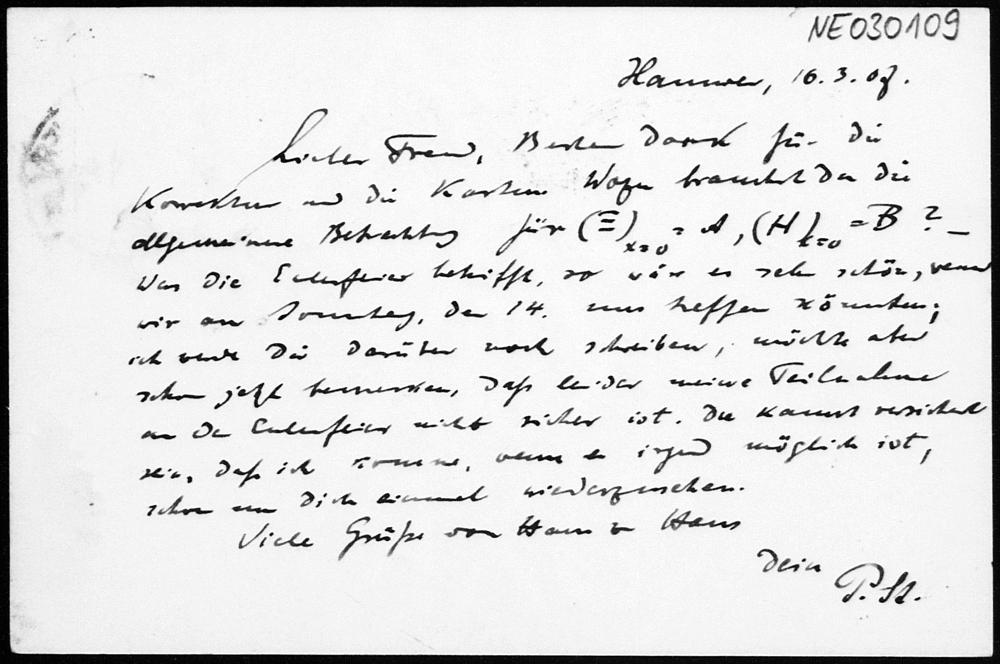 NE030109
Hannover, 16. 3. 07.
Lieber Freund, Besten Dank für die
Korrektur und die Karten. Wozu brauchst Du die
allgemeinere Betrachtung für (Ξ)x=0 = A, (H)x=0 = B? –
Was die Eulerfeier betrifft, so wäre es sehr schön, wenn
wir am Sonntag, den 14. uns treffen könnten;
ich werde Dir darüber noch schreiben, möchte aber
schon jetzt bemerken, daß leider meine Teilnahme
an der Eulerfeier nicht sicher ist. Du kannst versichert
sein, daß ich komme, wenn es irgend möglich ist,
schon um Dich einmal wiederzusehen.
Viele Grüße von Haus zu Haus
Dein
P. St.